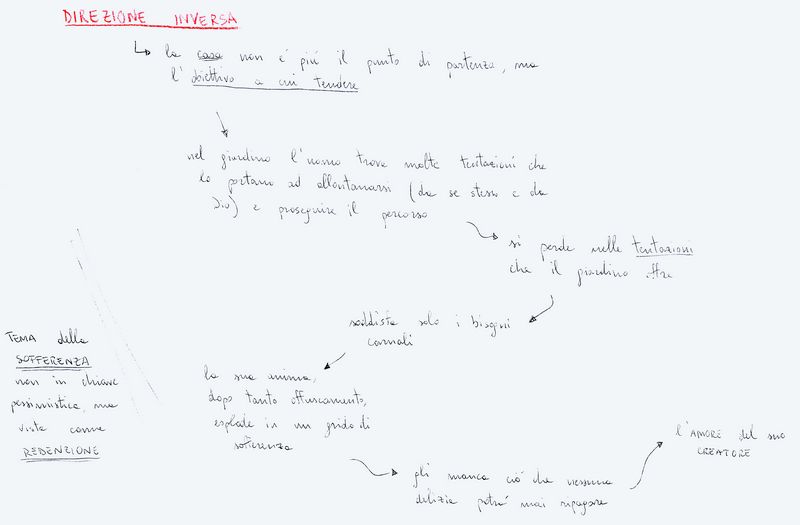 DIREZIONE INVERSA
la casa non é più il punto di partenza, ma
l'obiettivo a cui tendere
nel giardino l'uomo trova molte tentazioni che
lo portano ad allontanarsi (da se stesso e da
Dio) e proseguire il percorso
si perde nelle tentazioni
che il giardino offre
soddisfa solo i bisogni
carnali
TEMA della
SOFFERENZA
non in chiave
pessimistica, ma
vista come
REDENZIONE
la sua anima,
dopo tanto offuscamento,
esplode in un grido di
sofferenza
gli manca ciò che nessuna
delizia potrà mai ripagare
l'AMORE del suo
CREATORE